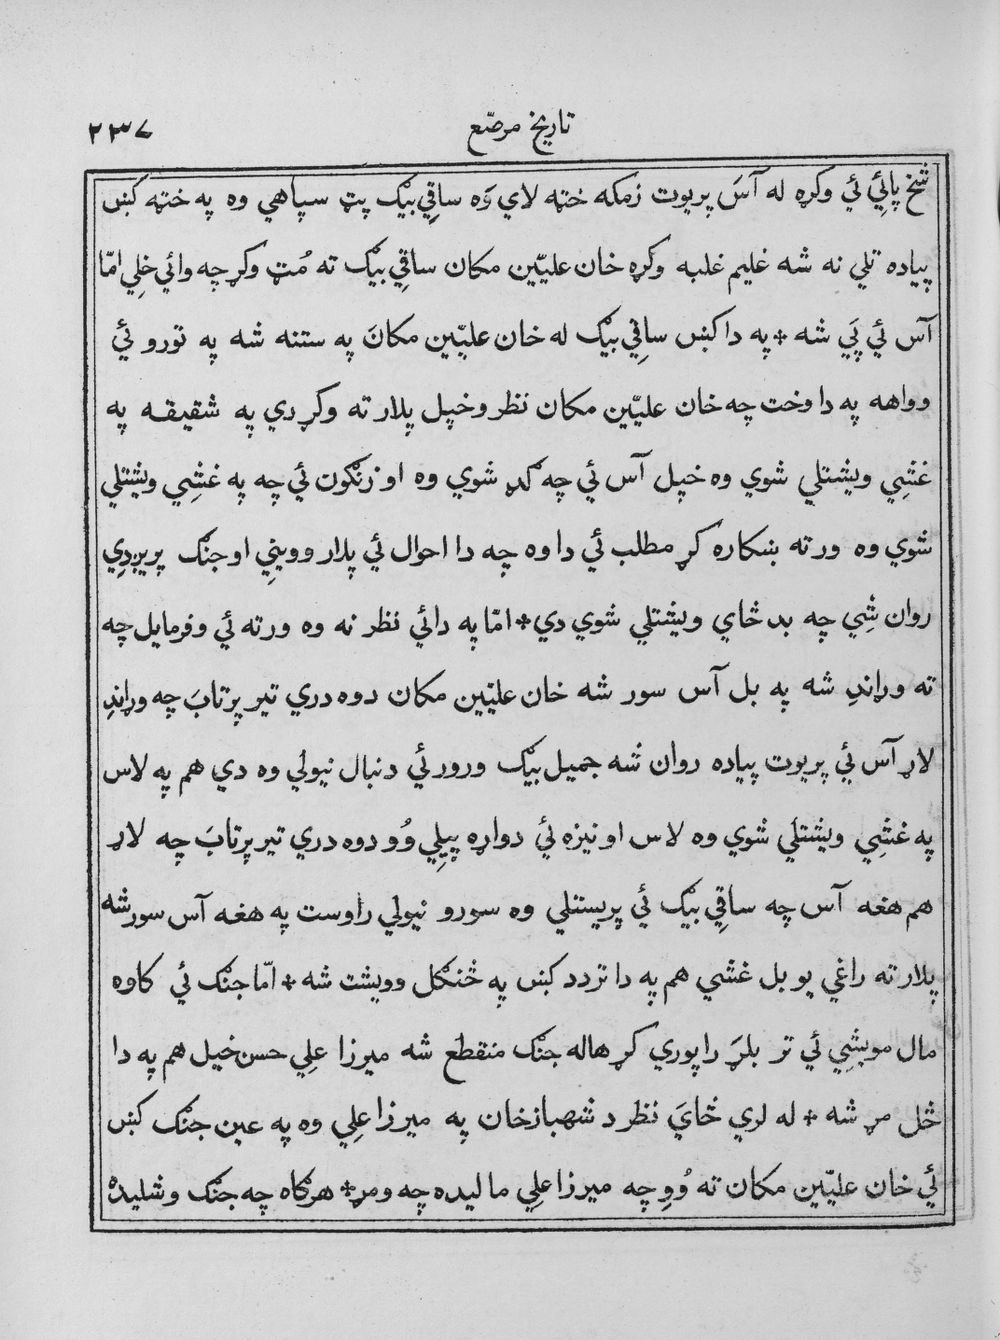 تاریخ مرصّع ٢٣٧
شخ پائي ئي وکړه له آسَ پریوت زمکه ختهه لاي وَه ساقِي بیګ پټ سپاهي وه په ختهه کښ
پیاده تلي نه شه غلیم غلبه وکړه خان علیّین مکان ساقِي بیګ ته مُټ وکړ چه وائي خلِي امّا
آس ئي پَي شه * په دا کښ ساقِي بیګ له خان علیّین مکانَ په ستنه شه په تورو ئي
وواهه په دا وخت چه خان علیّین مکان نظر وخپل پلار ته وکړ دي په شقیقه په
غشِي ویشتلي شوي وه خپل آس ئي چه ګډ شوي وه او زنګون ئي چه په غشِي ویشتلي
شوي وه ورته ښکاره کړ مطلب ئي دا وه چه دا احوال ئي پلار وویني او جنګ پریږدِي
روان شِي چه بد ځاي ویشتلي شوي دي * امّا په دائي نظر نه وه ورته ئي وفرمایل چه
ته وړاندِ شه په بل آس سور شه خان علیّین مکان دوه دري تیر پرتابَ چه وړاندِ
لاړ آس ئي پریوت پیاده روان شه جمیل بیګ ورور ئي دنبال نیولي وه دي هم په لاس
په غشِي ویشتلي شوي وه لاس او نیزه ئي دواړه پیِلي وُو دوه دري تیر پرتابَ چه لاړ
هم هغه آس چه ساقِي بیګ ئي پریستلي وه سورو نیولي راوست په هغه آس سور شه
پلار ته راغي یو بل غشي هم په دا تردد کښ په څنګل وویشت شه * امّا جنګ ئي کاوه
مال مویشِي ئي تر بلړ راپوري کړ هاله جنګ منقطع شه میرزا علِي حسن خیل هم په دا
ځل مړ شه * له لري ځايَ نظر د شهباز خان په میرزا علِي وه په عین جنګ کښ
ئي خان علیّین مکان ته وُوِ چه میرزا علِي ما لیده چه ومړ * هرګاه چه جنګ وشلیدهٔ